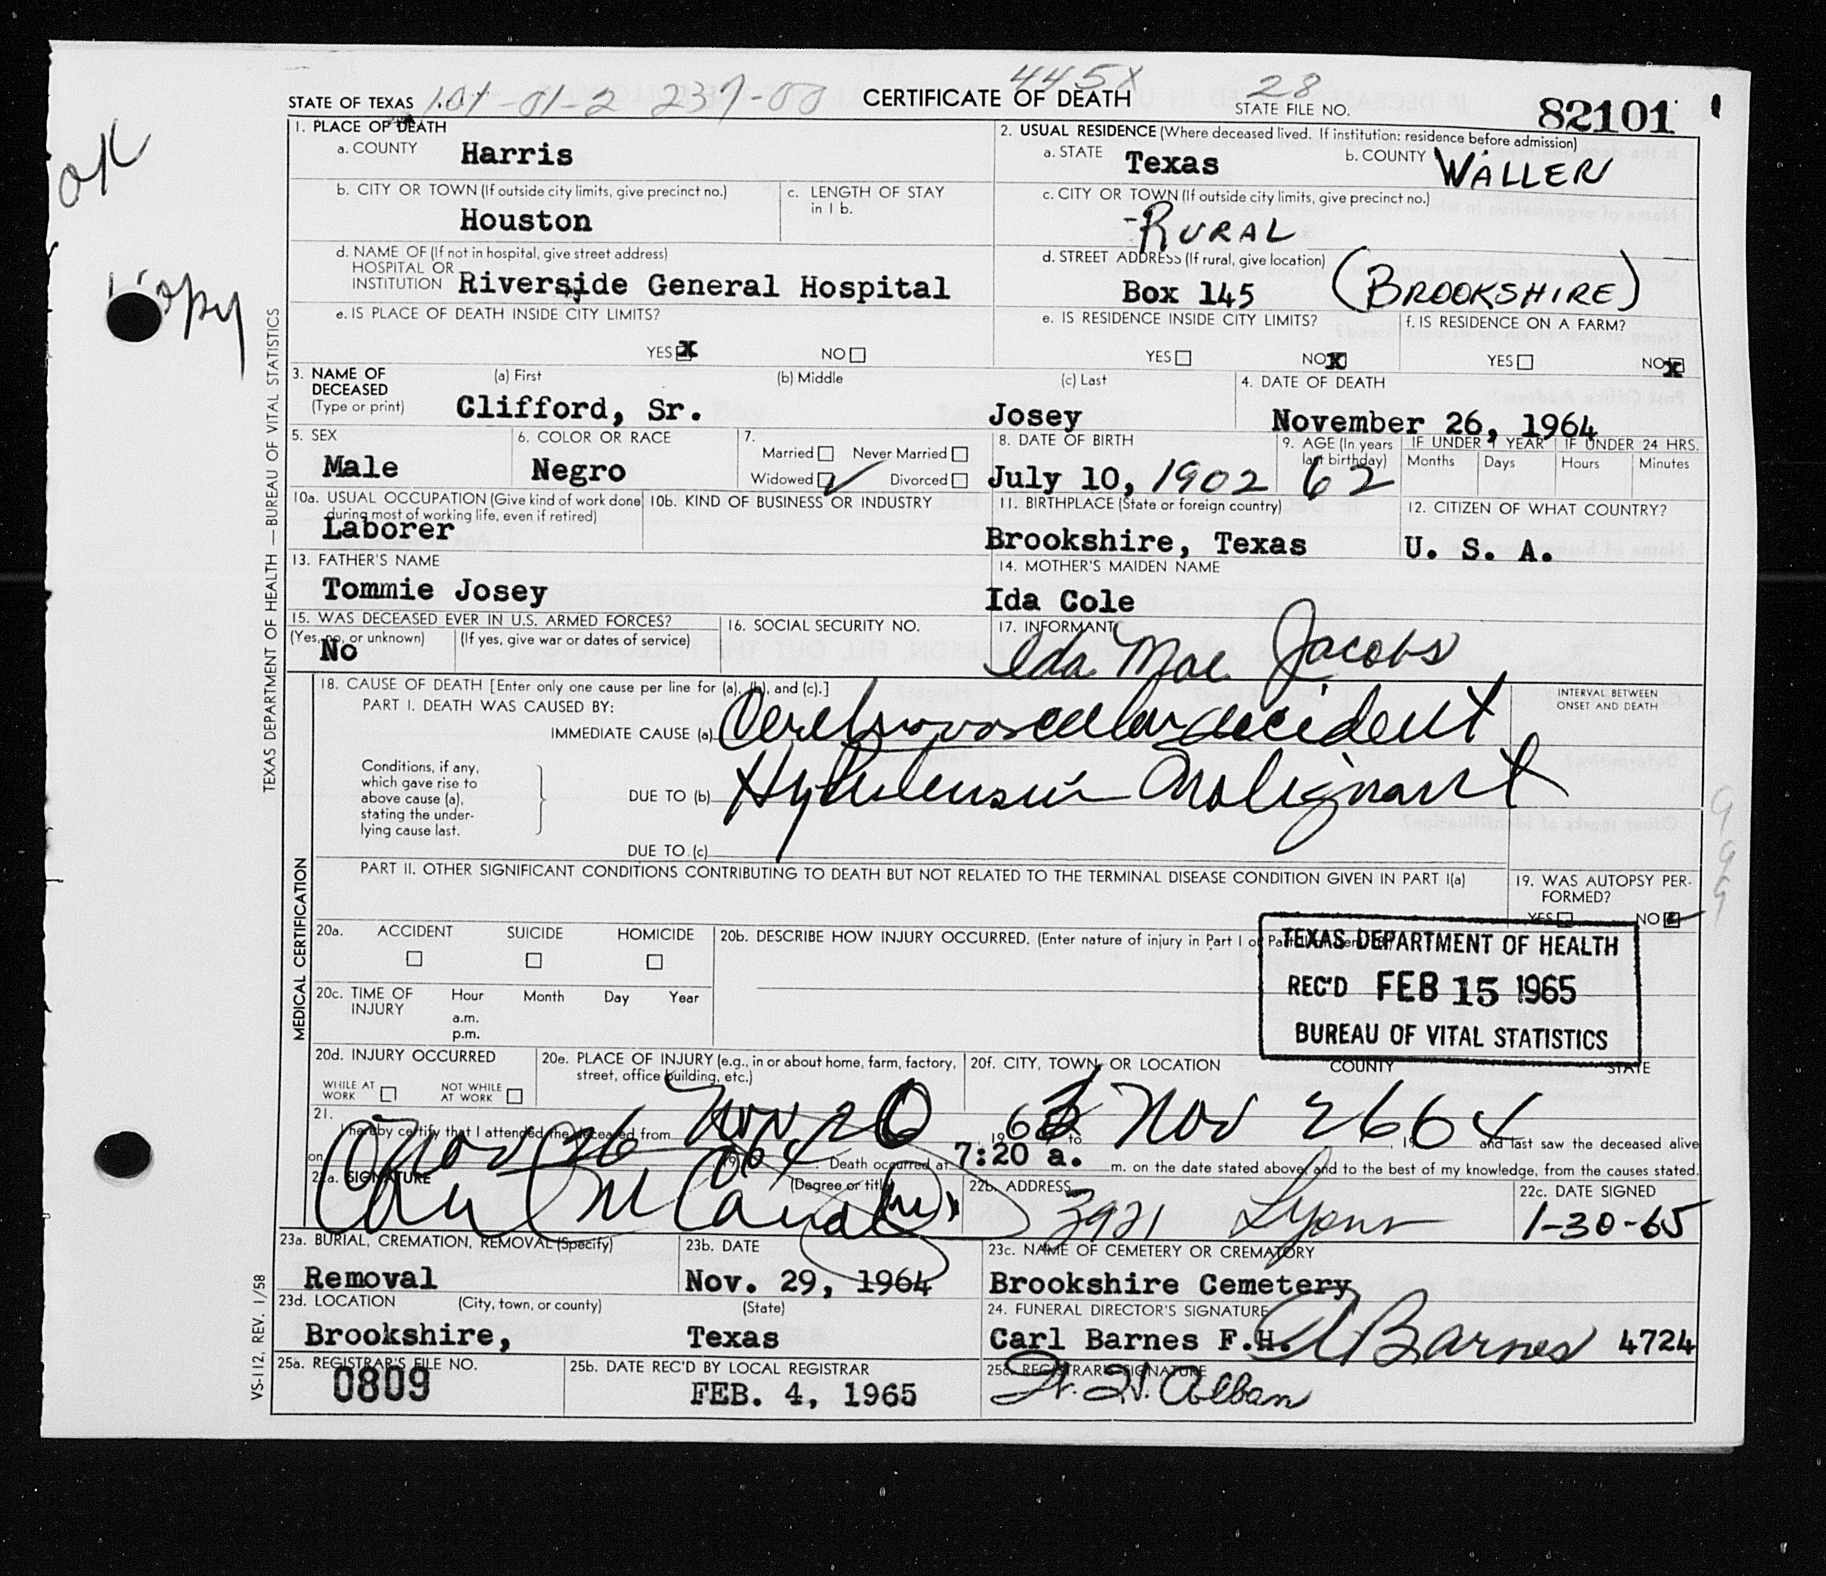 445X 28
STATE OF TEXAS 101-01-2 237-00 CERTIFICATE OF DEATH STATE FILE NO. 82101
OK
Copy
TEXAS DEPARTMENT OF HEALTH — BUREAU OF VITAL STATISTICS
1. PLACE OF DEATH
a. COUNTY Harris
2. USUAL RESIDENCE (Where deceased lived. If institution: residence before admission)
a. STATE Texas b. COUNTY WALLER
b. CITY OR TOWN (If outside city limits, give precinct no.) Houston
c. LENGTH OF STAY in 1 b.
c. CITY OR TOWN (If outside city limits, give precinct no.)
- RURAL
d. NAME OF (If not in hospital, give street address)
HOSPITAL OR
INSTITUTION Riverside General Hospital
d. STREET ADDRESS (If rural, give location)
Box 145 (BROOKSHIRE)
e. IS PLACE OF DEATH INSIDE CITY LIMITS?
YES X NO
e. IS RESIDENCE INSIDE CITY LIMITS?
YES NO X
f. IS RESIDENCE ON A FARM?
YES NO X
3. NAME OF DECEASED (Type or print)
(a) First (b) Middle (c) Last
Clifford, Sr. Josey
4. DATE OF DEATH
November 26, 1964
5. SEX
Male
6. COLOR OR RACE
Negro
7.
Married Never Married
Widowed ✓ Divorced
8. DATE OF BIRTH
July 10, 1902
9. AGE (In years last birthday)
62
IF UNDER 1 YEAR
Months Days
IF UNDER 24 HRS.
Hours Minutes
10a. USUAL OCCUPATION (Give kind of work done during most of working life, even if retired)
Laborer
10b. KIND OF BUSINESS OR INDUSTRY
11. BIRTHPLACE (State or foreign country)
Brookshire, Texas
12. CITIZEN OF WHAT COUNTRY?
U. S. A.
13. FATHER'S NAME
Tommie Josey
14. MOTHER'S MAIDEN NAME
Ida Cole
15. WAS DECEASED EVER IN U.S. ARMED FORCES?
(Yes, no, or unknown) (If yes, give war or dates of service)
No
16. SOCIAL SECURITY NO.
17. INFORMANT
Ida Mae Jacobs
MEDICAL CERTIFICATION
18. CAUSE OF DEATH [Enter only one cause per line for (a), (b), and (c).]
PART I. DEATH WAS CAUSED BY:
IMMEDIATE CAUSE (a) Cerebrovascular accident
INTERVAL BETWEEN
ONSET AND DEATH
Conditions, if any,
which gave rise to
above cause (a),
stating the under-
lying cause last.
DUE TO (b) Hypertension Malignant
DUE TO (c)
PART II. OTHER SIGNIFICANT CONDITIONS CONTRIBUTING TO DEATH BUT NOT RELATED TO THE TERMINAL DISEASE CONDITION GIVEN IN PART I(a)
19. WAS AUTOPSY PER-
FORMED?
YES NO
20a. ACCIDENT SUICIDE HOMICIDE
20b. DESCRIBE HOW INJURY OCCURRED. (Enter nature of injury in Part I or Part
TEXAS DEPARTMENT OF HEALTH
REC'D FEB 15 1965
BUREAU OF VITAL STATISTICS
20c. TIME OF INJURY
Hour Month Day Year
a.m.
p.m.
20d. INJURY OCCURRED
WHILE AT WORK NOT WHILE AT WORK
20e. PLACE OF INJURY (e.g., in or about home, farm, factory, street, office building, etc.)
20f. CITY, TOWN, OR LOCATION COUNTY STATE
21.
I hereby certify that I attended the deceased from Nov 20 19 to Nov 26 1964 and last saw the deceased alive
on Nov 26 1964. Death occurred at 7:20 a. m. on the date stated above, and to the best of my knowledge, from the causes stated.
22a. SIGNATURE (Degree or title)
22b. ADDRESS
3921 Lyons
22c. DATE SIGNED
1-30-65
23a. BURIAL, CREMATION, REMOVAL (Specify)
Removal
23b. DATE
Nov. 29, 1964
23c. NAME OF CEMETERY OR CREMATORY
Brookshire Cemetery
23d. LOCATION (City, town, or county) (State)
Brookshire, Texas
24. FUNERAL DIRECTOR'S SIGNATURE
Carl Barnes F.H. Barnes 4724
25a. REGISTRAR'S FILE NO.
0809
25b. DATE REC'D BY LOCAL REGISTRAR
FEB. 4, 1965
25c. REGISTRAR'S SIGNATURE
VS-112, REV. 1/58